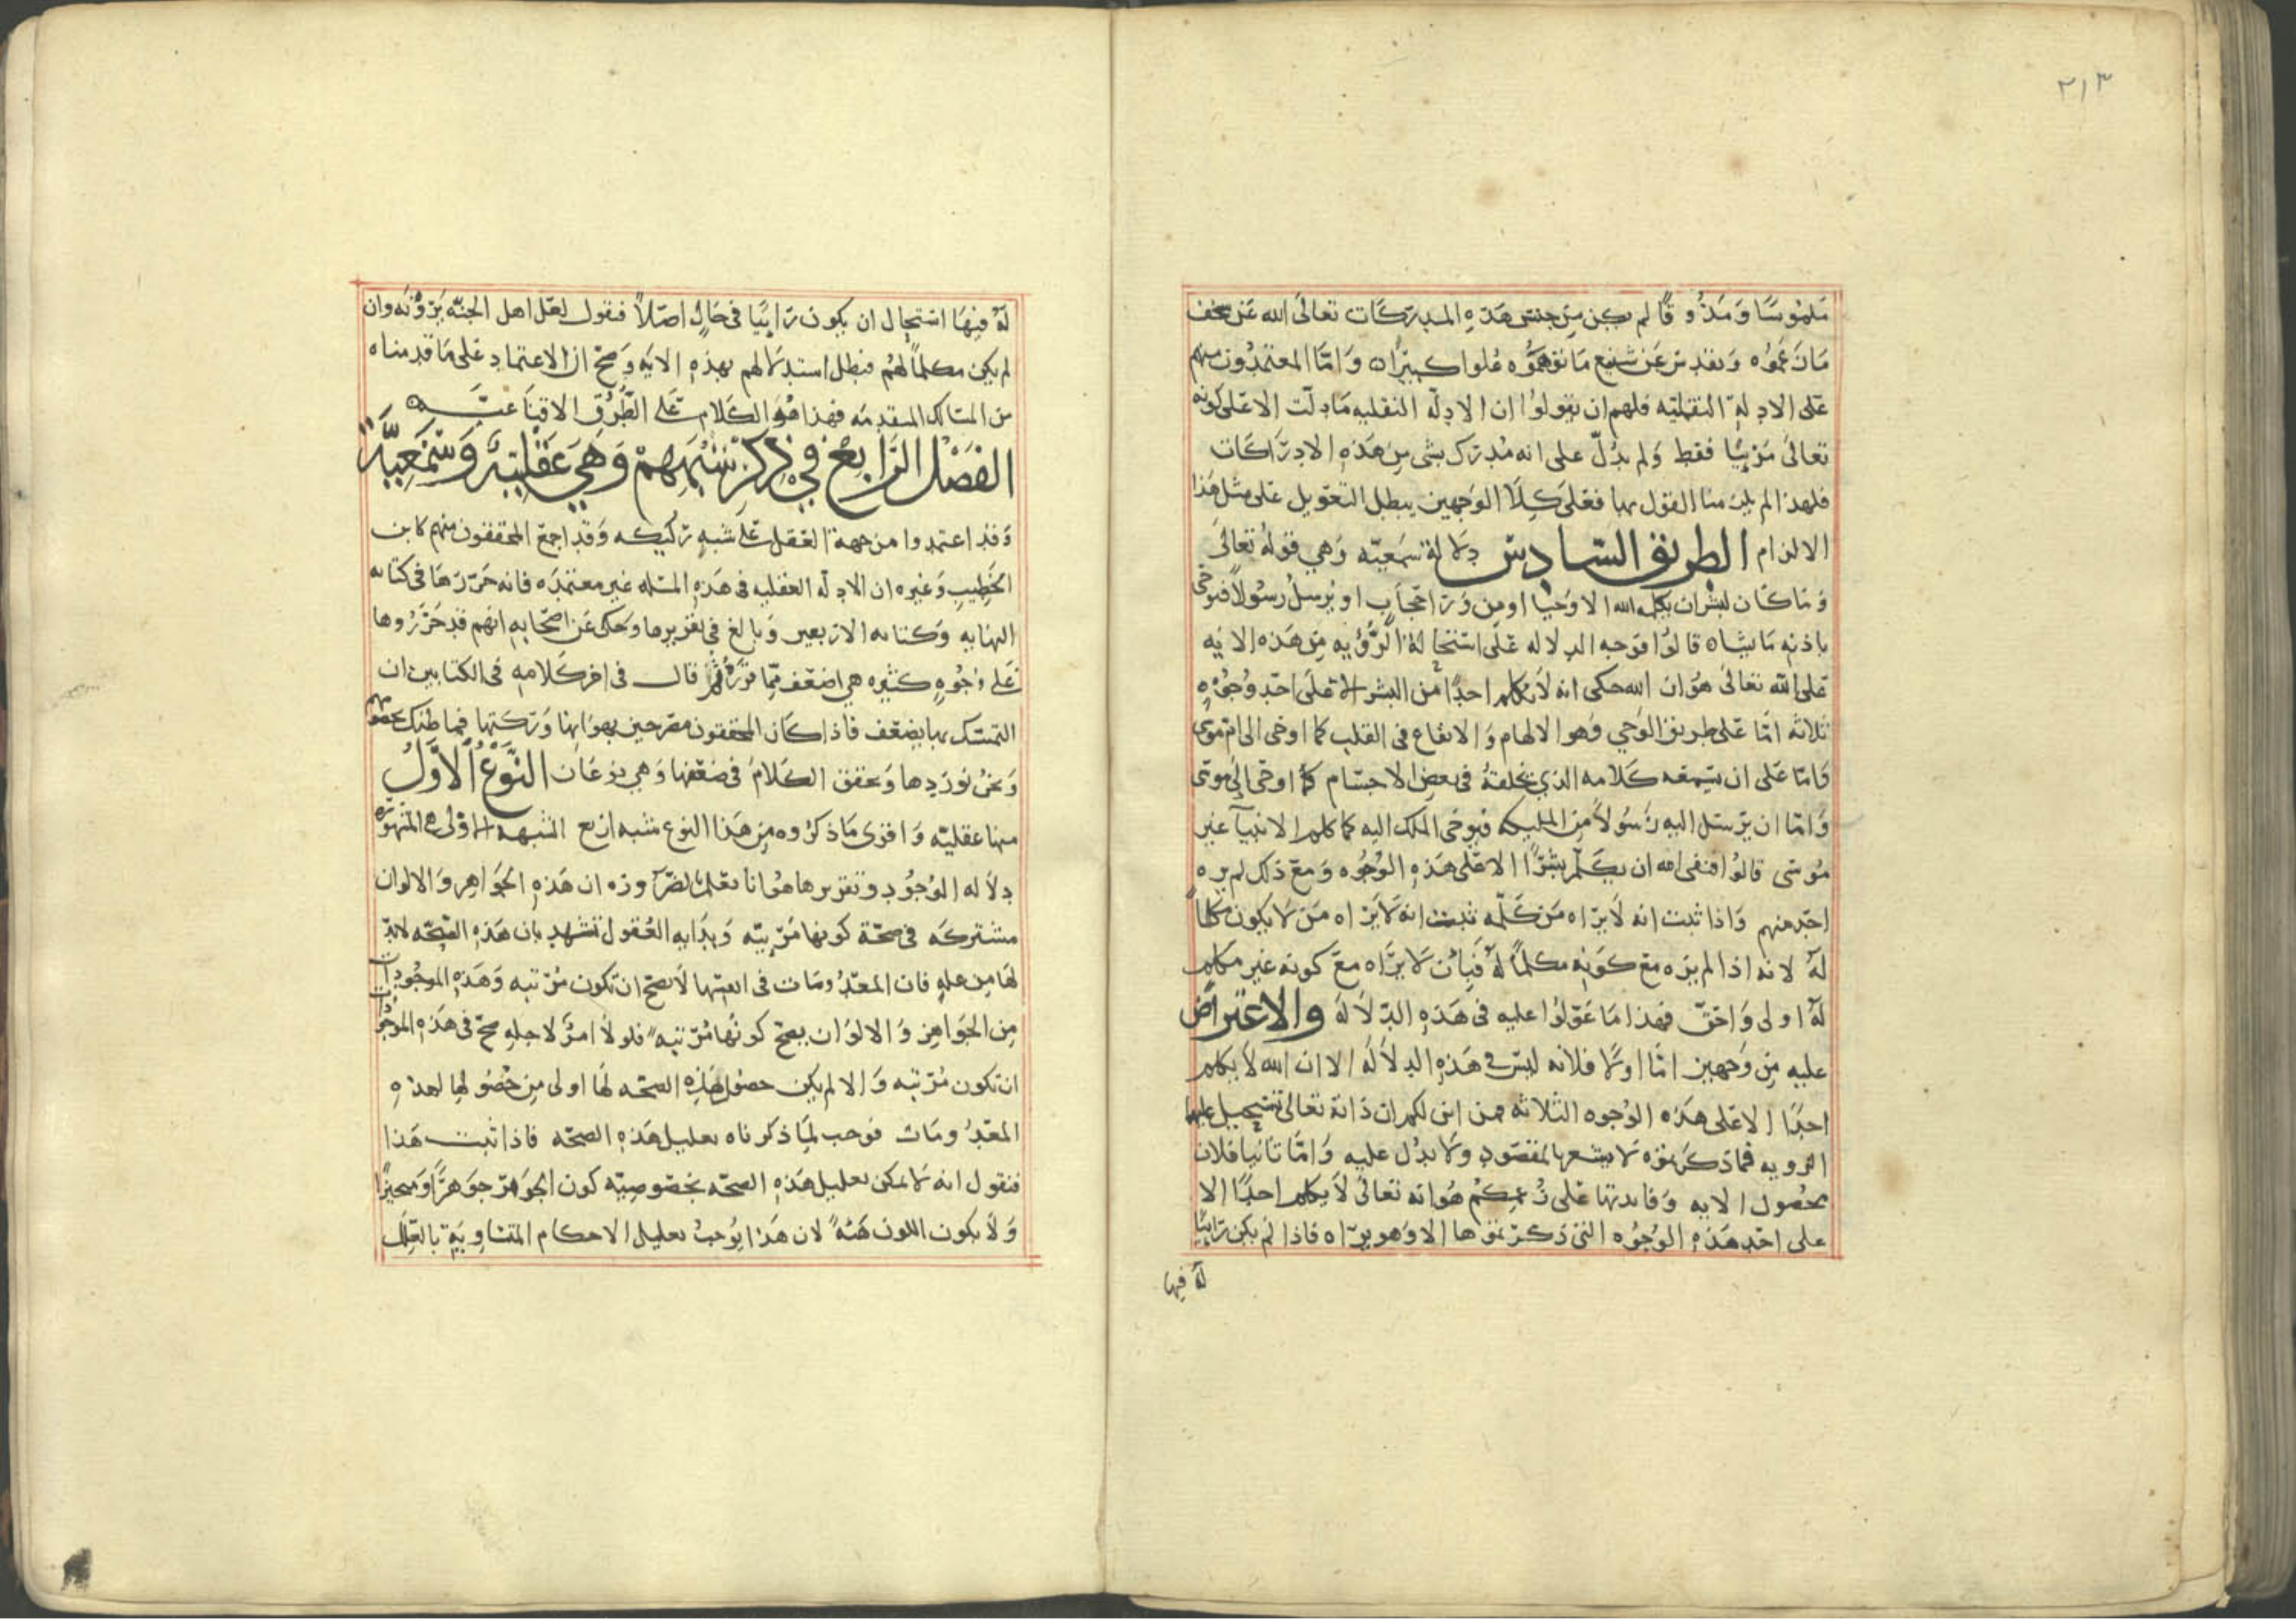 ٢١٣
ملموسًا ومذوقًا لم يكن من جنس هذه المدركات تعالى الله عن سخف
ما زعموه وتقدس عن شنيع ما توهموه علوا كبيرًا واما المعتمدون منهم
على الادلة النقلية فلهم ان يقولوا ان الادلة النقليه ما دلت الا على كونه
تعالى مرئيًا فقط ولم يدل على انه مدرك بشى من هذه الادراكات
فلهذا لم يلزمنا القول بها فعلى كلا الوجهين يبطل التعويل على مثل هذا
الالزام الطريق السادس دلالة سمعيه وهي قوله تعالى
وما كان لبشر ان يكلمه الله الا وحيا او من ورآ حجاب او يرسل رسولًا فيوحى
باذنه ما يشاء قالوا فوجه الدلاله على استحالة الرؤيه من هذه الايه
على الله تعالى هو ان الله حكى انه لا يكلم احدًا من البشر الا على احد وجوه
ثلاثه اما على طريق الوحي وهو الالهام والايقاع فى القلب كما اوحى الى ام موسى
واما على ان يسمعه كلامه الذي يخلقه فى بعض الاجسام كما اوحى الى موسى
واما ان يرسل اليه رسولًا من المليكه فيوحى الملك اليه كما كلم الانبيآ غير
موسى قالوا فنفى الله ان يكلم بشرًا الا على هذه الوجوه ومع ذلك لم يره
احد منهم واذا ثبت انه لا يراه من كلمه ثبت انه لا يراه من لا يكون مكلمًا
له لانه اذا لم يره مع كونه مكلمًا له فبان لا يراه مع كونه غير مكلم
له اولى واحق فهذا ما عولوا عليه فى هذه الدلاله والاعتراض
عليه من وجهين اما اولا فلانه ليس في هذه الدلاله الا ان الله لا يكلم
احدًا الا على هذه الوجوه الثلاثه فمن اين لكم ان ذاته تعالى تستحيل عليها
الرويه فما ذكرتموه لا يشعر بالمقصود ولا يدل عليه واما ثانيا فلان
محصول الايه وفايدتها على زعمكم هو انه تعالى لا يكلم احدًا الا
على احد هذه الوجوه التى ذكرتموها الا وهو يراه فاذا لم يكن رائيًا
له فيها
له فيها استحال ان يكون رائيًا فى حال اصلًا فنقول لعل اهل الجنه يرونه وان
لم يكن مكلمًا لهم فبطل استدلالهم بهذه الايه وصح ان الاعتماد على ما قدمناه
من المسالك المتقدمه فهذا هو الكلام على الطرق الاقناعيه
الفصل الرابع في ذكر شبههم وهي عقلية وسمعية
وقد اعتمدوا من جهة العقل على شبه ركيكه وقد اجمع المحققون منهم كابن
الخطيب وغيره ان الادله العقليه فى هذه المسئله غير معتمده فانه حررها فى كتابه
النهايه وكتابه الاربعين وبالغ في تقريرها وحكى عن اصحابه انهم قد حرروها
على وجوه كثيره هي اضعف مما قرره ثم قال فى اخر كلامه فى الكتابين ان
التمسك بها يضعف فاذا كان المحققون مصرحين بهوانها وركتها فما ظنك بخصومهم
ونحن نوردها ونحقق الكلام فى ضعفها وهي نوعان النوع الاول
منها عقليه واقوى ما ذكروه من هذا النوع شبه اربع الشبهه الاولى هي المشهوره
دلاله الوجود وتقريرها هو انا نعلم بالضرآ وره ان هذه الجواهر والالوان
مشتركه في صحة كونها مرئيه وبدايه العقول تشهد بان هذه الصحه لا بد
لها من عله فان المعدومات فى انفسها لا يصح ان تكون مرئيه وهذه الموجودات
من الجواهر والالوان يصح كونها مرئيه فلولا امر لاجله صح فى هذه الموجودات
ان تكون مرئيه والا لم يكن حصول هذه الصحه لها اولى من حصولها لهذه
المعدومات فوجب لما ذكرناه تعليل هذه الصحه فاذا ثبت هذا
فنقول انه لا يمكن تعليل هذه الصحه بخصوصيه كون الجوهر جوهرًا ومتحيزًا
ولا بكون اللون هيئه لان هذا يوجب تعليل الاحكام المتساويه بالعلل